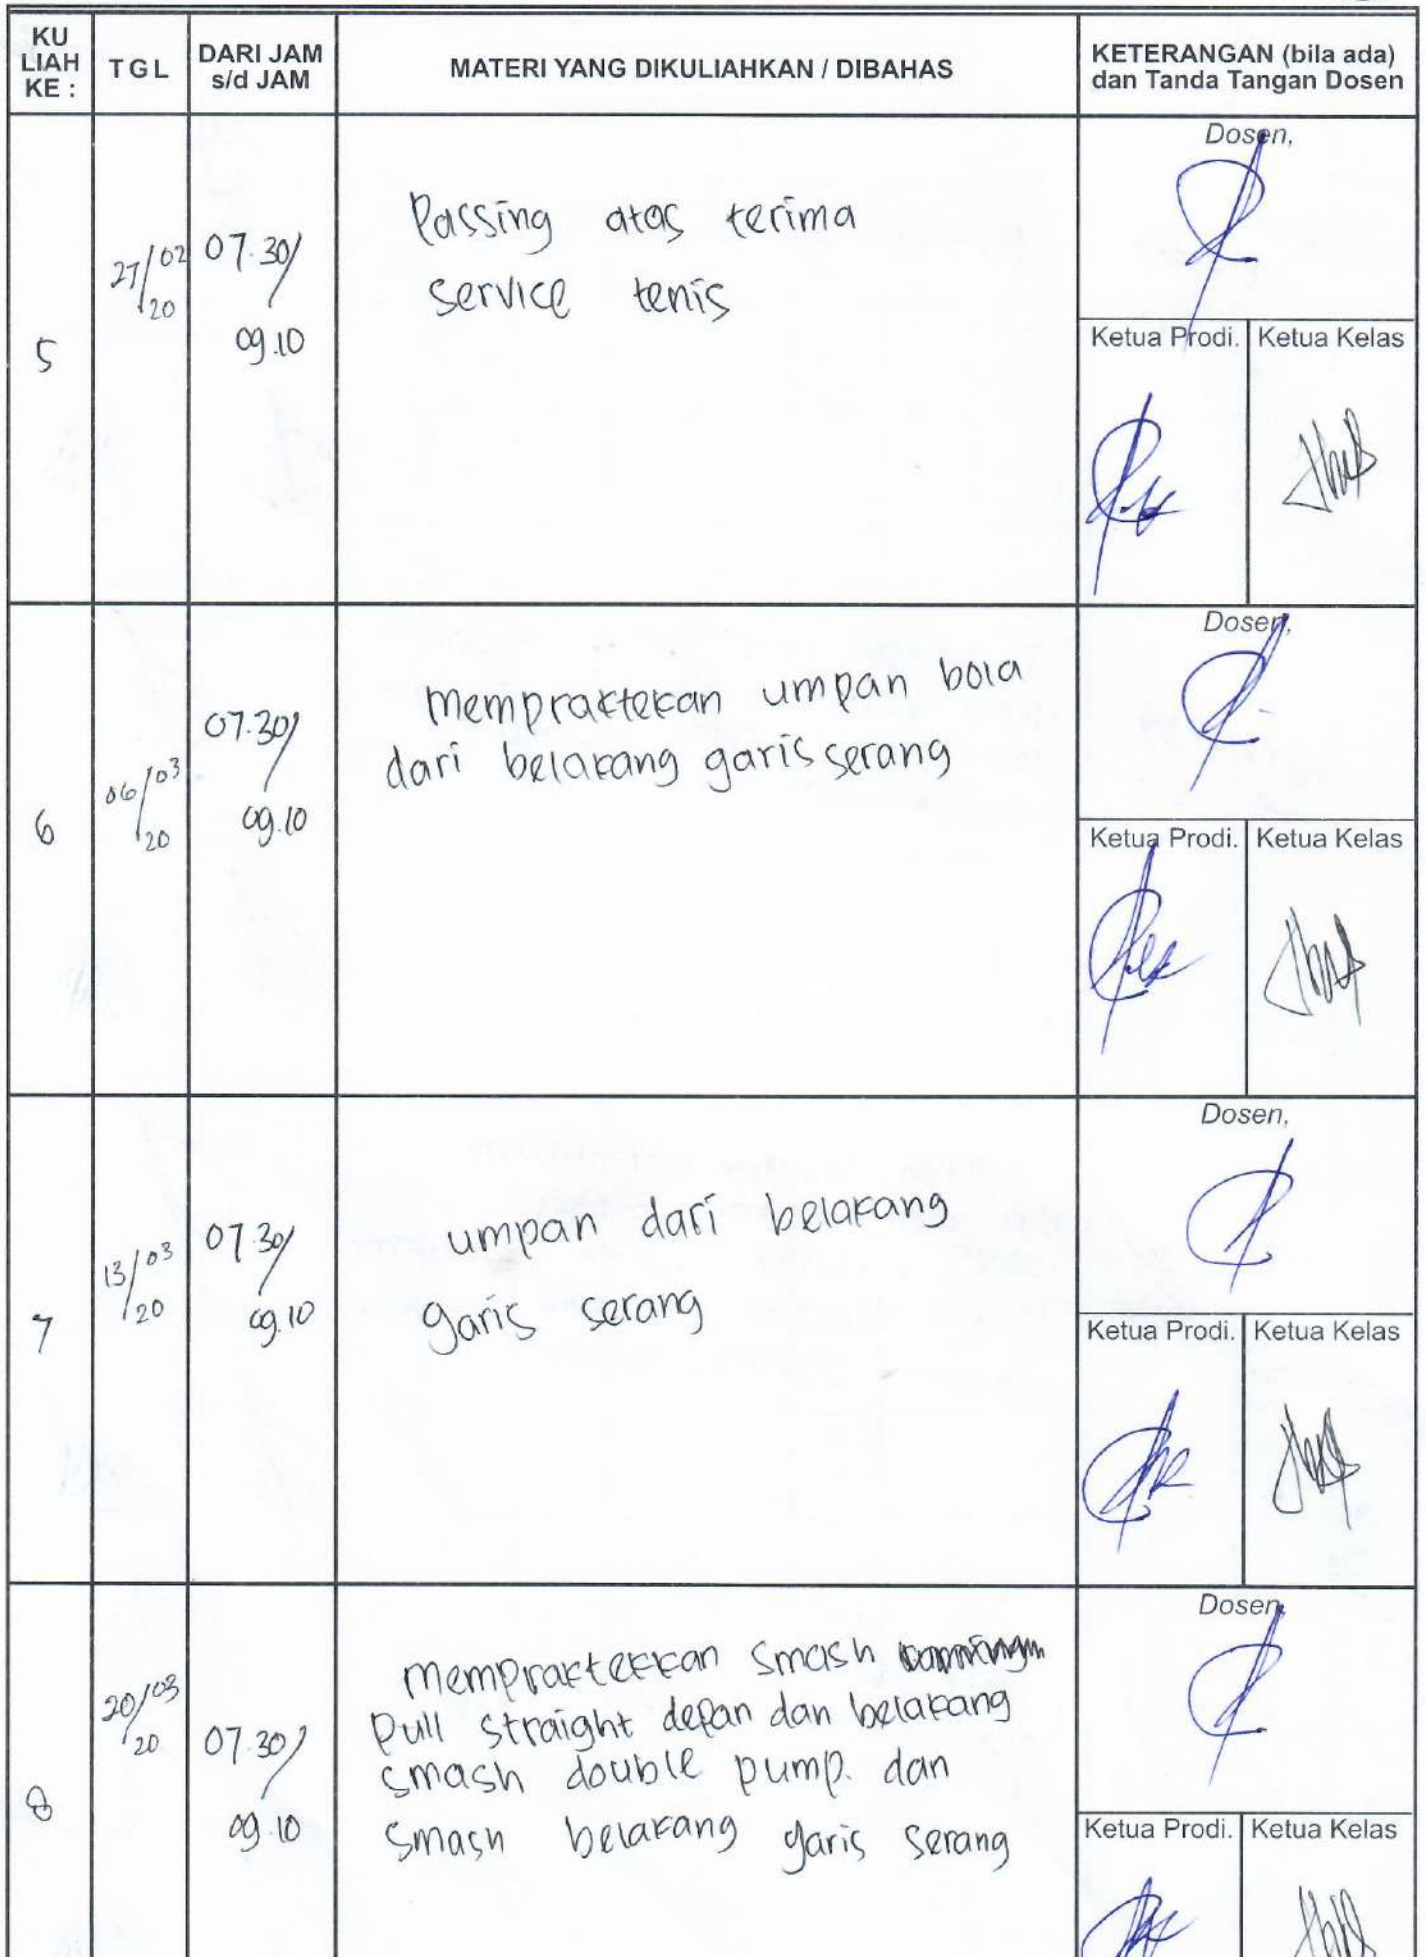 KU
LIAH
KE :
TGL
DARI JAM
s/d JAM
MATERI YANG DIKULIAHKAN / DIBAHAS
KETERANGAN (bila ada)
dan Tanda Tangan Dosen
5
27/02
20
07.30/
09.10
Passing atas terima
service tenis
Dosen,
Ketua Prodi.
Ketua Kelas
6
06/03
20
07.30/
09.10
mempraktekan umpan bola
dari belakang garis serang
Dosen,
Ketua Prodi.
Ketua Kelas
7
13/03
20
07.30/
09.10
umpan dari belakang
garis serang
Dosen,
Ketua Prodi.
Ketua Kelas
8
20/03
20
07.30/
09.10
mempraktekkan smash
pull straight depan dan belakang
smash double pump. dan
smash belakang garis serang
Dosen,
Ketua Prodi.
Ketua Kelas